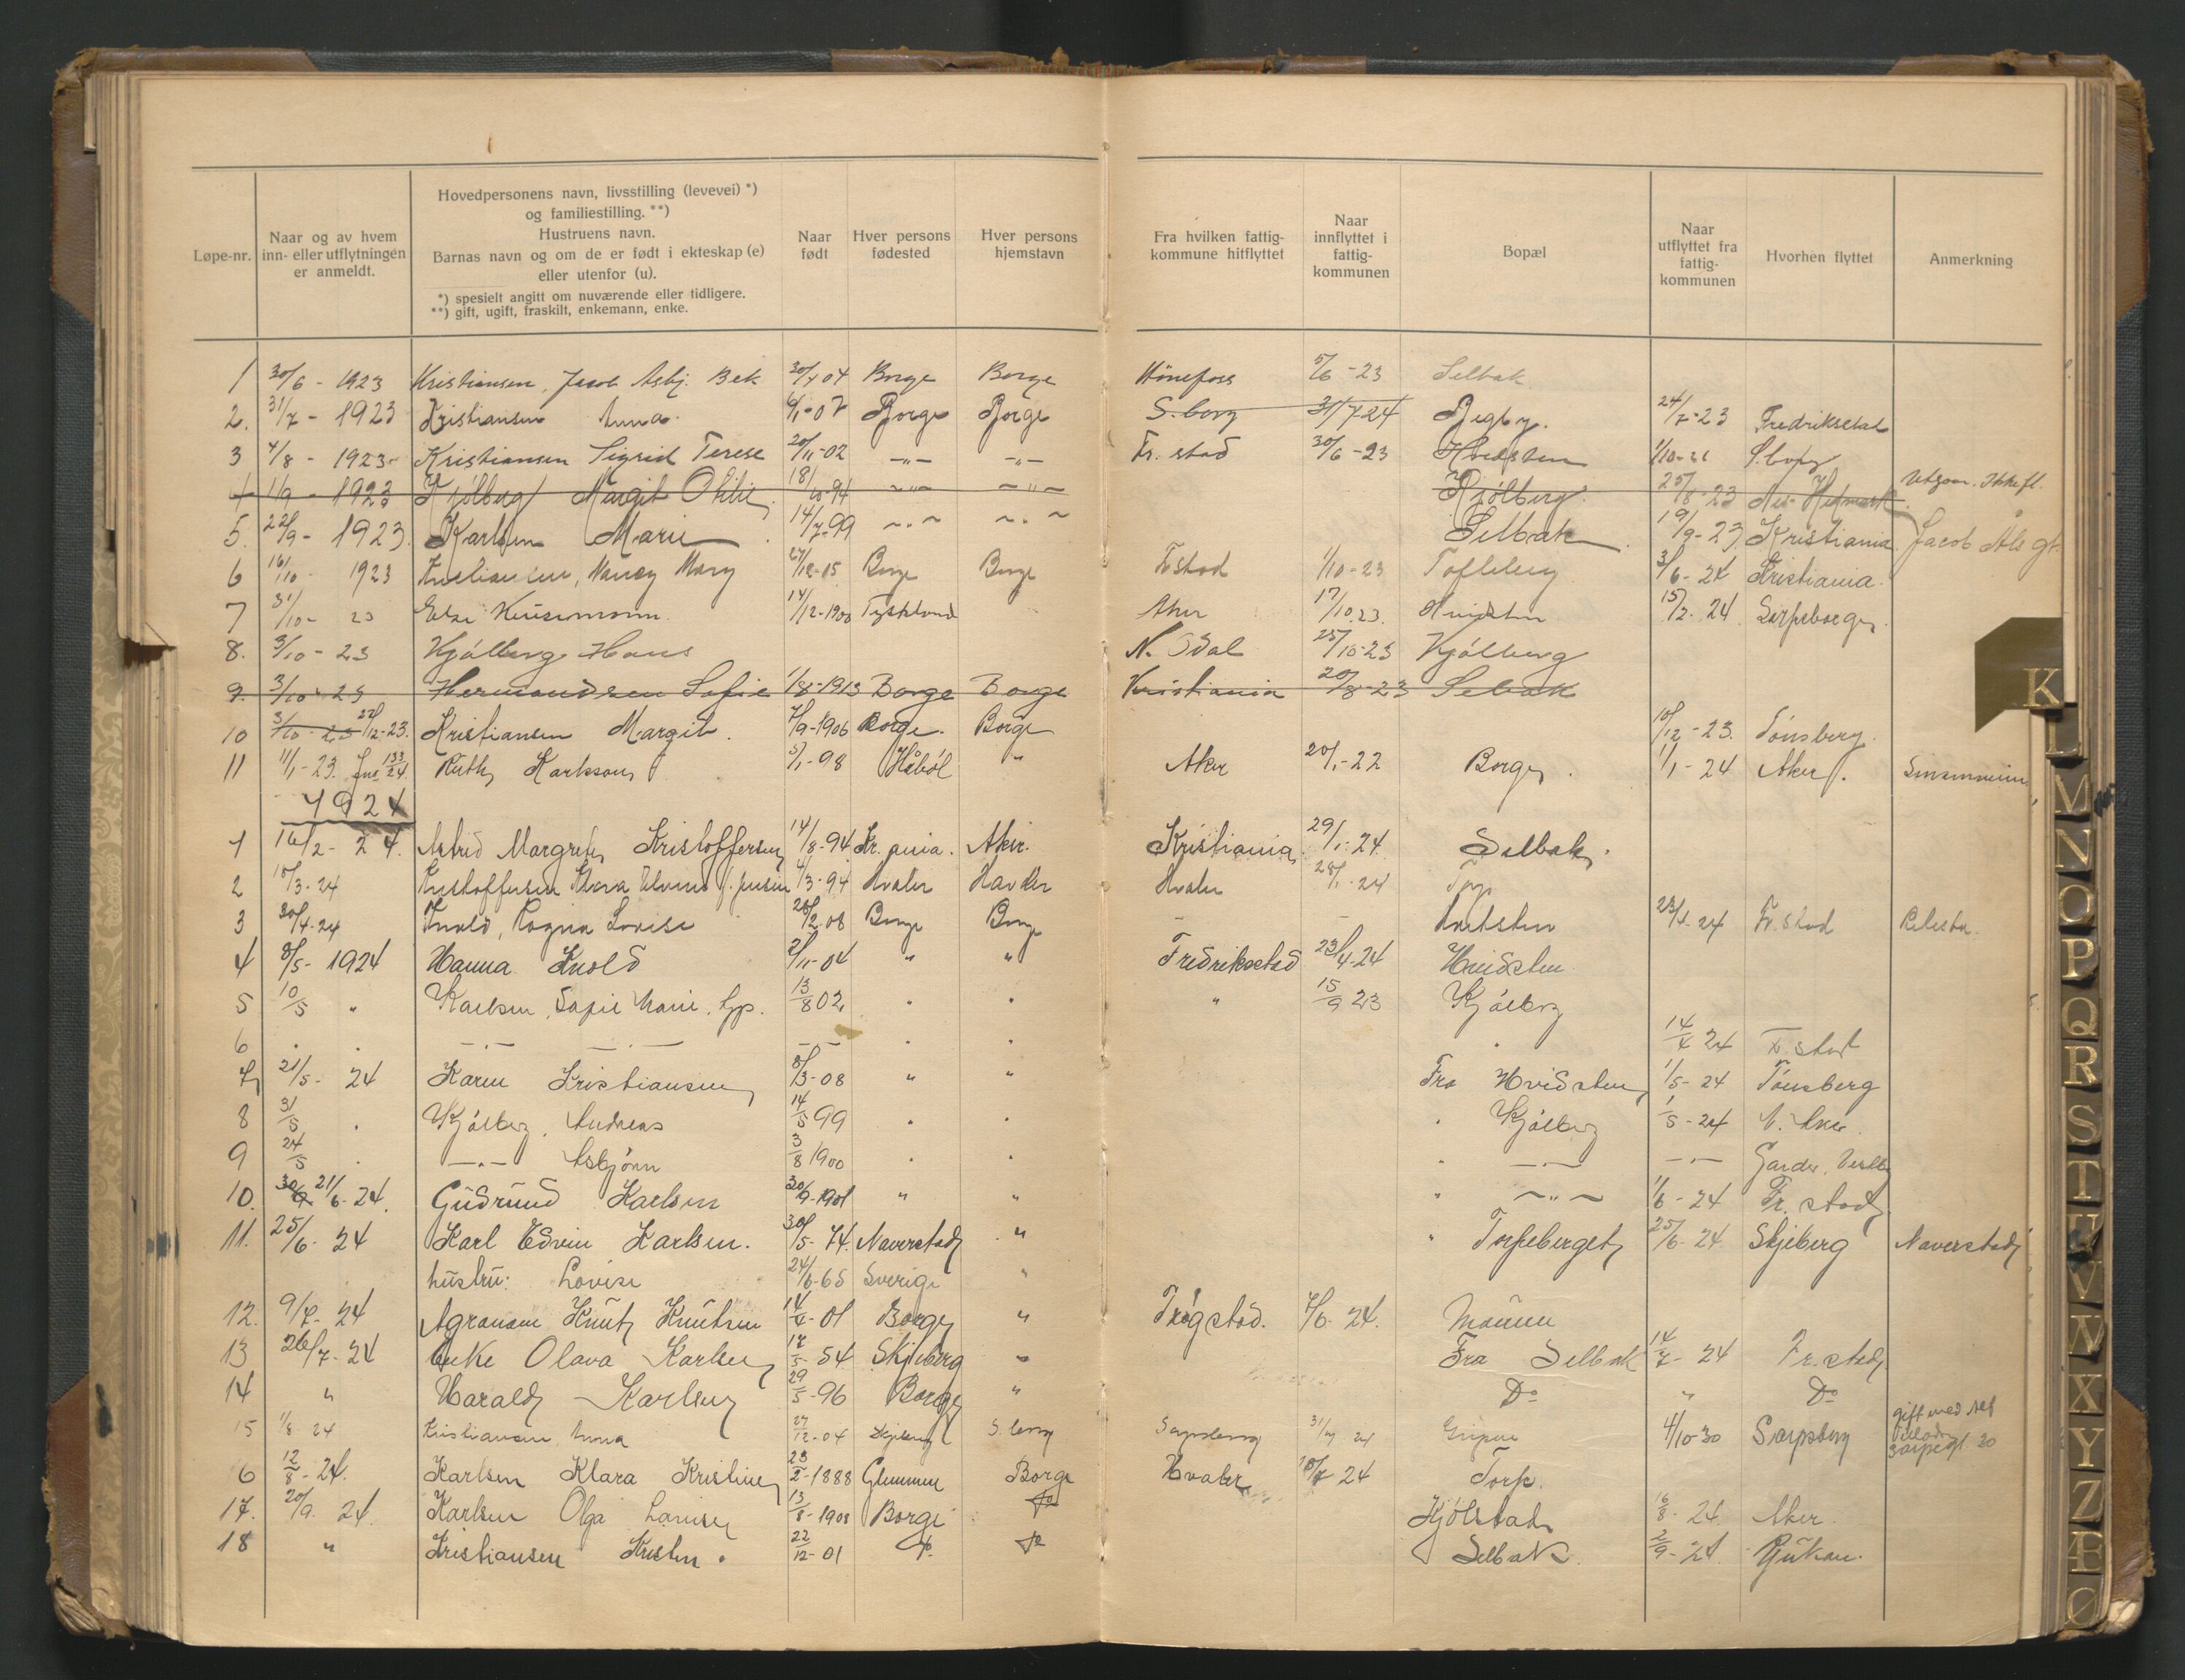 Løpe-nr.
Naar og av hvem
inn- eller utflytningen
er anmeldt.
Hovedpersonens navn, livsstilling (levevei) *)
og familiestilling. **)
Hustruens navn.
Barnas navn og om de er født i ekteskap (e)
eller utenfor (u).
*) spesielt angitt om nuværende eller tidligere.
**) gift, ugift, fraskilt, enkemann, enke.
Naar
født
Hver persons
fødested
Hver persons
hjemstavn
Fra hvilken fattig-
kommune hitflyttet
Naar
innflyttet i
fattig-
kommunen
Bopæl
Naar
utflyttet fra
fattig-
kommunen
Hvorhen flyttet
Anmerkning
1 30/6 - 1923 Kristiansen, Jacob Asbj. Bek 20/4 04 Borge Borge Hønefoss 5/6 -23 Selbak
2. 31/7 - 1923 Kristiansen Anna. 6/1-07 Borge Borge S.borg 31/7 24 Begby. 24/7-23 Fredrikstad
3 4/8 - 1923 Kristiansen Sigrid Terese 20/11-02 -"- -"- Fr. stad 30/6 -23 Hvidsten 1/10-26 S.borg
4 1/9 - 1923 Kjølberg Margit Otilie 18/10-94 -"- -"- Kjølberg. 25/8-23 Utgaar. Ikke fl.
5. 22/9 - 1923. Karlsen Marie 14/7-99 -"- -"- Selbak. 19/9-23 Kristiania Jacob Åls gt.
6 16/10 - 1923 Kristiansen, Nancy Mary 27/12-15 Borge Borge Fr.stad 1/10-23 Tofteberg 3/6-24 Kristiania.
7 31/10 - 23 Else Heusemann. 14/12-1900 Tyskland Aker 17/10.23. Hvidsten 15/2. 24 Sarpsborg.
8. 3/10 - 23 Kjølberg Hans N. Odal 25/10-23 Kjølberg
9. 3/10 - 23 Hermandsen Sofie 1/8-1913 Borge Borge Kristiania 20/8-23 Selbak
10 3/10 - 23 22/12-23. Kristiansen Margit. 7/9-1906 Borge. Borge 10/12-23. Tønsberg.
11 11/1-23. Jnr. 133/24. Ruth Karlsson 5/1-98 Håbøl " Aker 20/1-22 Borge. 1/1-24 Aker. Sinsenveien
1924
1 16/2 - 24. Astrid Margrethe Kristoffersen 14/8-94 Kr.ania. Aker. Kristiania 29/1-24 Selbak.
2 18/3-24 Kristoffersen Klara Elvine f. Jensen 4/3-94 Hvaler Hvaler Hvaler 28/1-24 Torp
3 30/4-24 Knold, Ragna Lovise 28/2-08 Borge Borge - - Hvitsten 23/4-24 Fr.stad
4 8/5- 1924 Hanna Knold 2/11-04 " " Fredrikstad 23/4-24 Hvidsten
5 10/5 " Karlsen, Sofie Marie. 13/8 02 " " " 15/9 23 Kjølberg
6 " " -"- -"- -"- " " " 14/4 24 Fr. stad
7 21/5- 24 Karen Kristiansen 8/3-08 " " Fra Hvidsten 1/5-24 Tønsberg
8 31/5 " Kjølberg, Andreas 14/5 99 " " " Kjølberg 1/5-24 V. Aker.
9 24/5 " -"- Asbjørn 3/8 1900 " " " -"- -"-
10. 30/9 21/6-24. Gudrund Karlsen 30/9-1901 " " " -"- 1/6-24 Fr. stad
11. 25/6- 24 Karl Edvin Karlsen. 30/5-74. Naverstad " " Torpeberget 25/6-24 Skjeberg Naverstad
hustru: Lovise 24/6-65 Sverige "
12. 9/7- 24 Agronom Knut Knutsen 14/4-01 Borge " Trøgstad. 7/6-24. Moum
13 26/7-24 Enke Olava Karlsen 12/5-54 Skjeberg " Fra Selbak 14/7-24 Fr. stad
14 " Harald Karlsen 29/5-96 Borge " Do " Do
15 1/8 24 Kristiansen, Anna 27/12-04 Skjeberg S.borg Sarpsborg 31/7 24 4/10-30 Sarpsborg gift med
16 12/8-24. Karlsen Klara Kristine 23/2-1888 Glemmen Borge Hvaler 10/7 24 Torp.
17. 20/9. 24. Karlsen Olga Lovise 13/8-1908 Borge Do Kjølstad 16/8-24. Aker.
18 " Kristiansen Kristen. 22/12-01 Do Do Selbak. 2/9-24. Rjukan.
K
L
M
N
O
P
Q
R
S
T
U
V
W
X
Y
Z
Æ
Ø